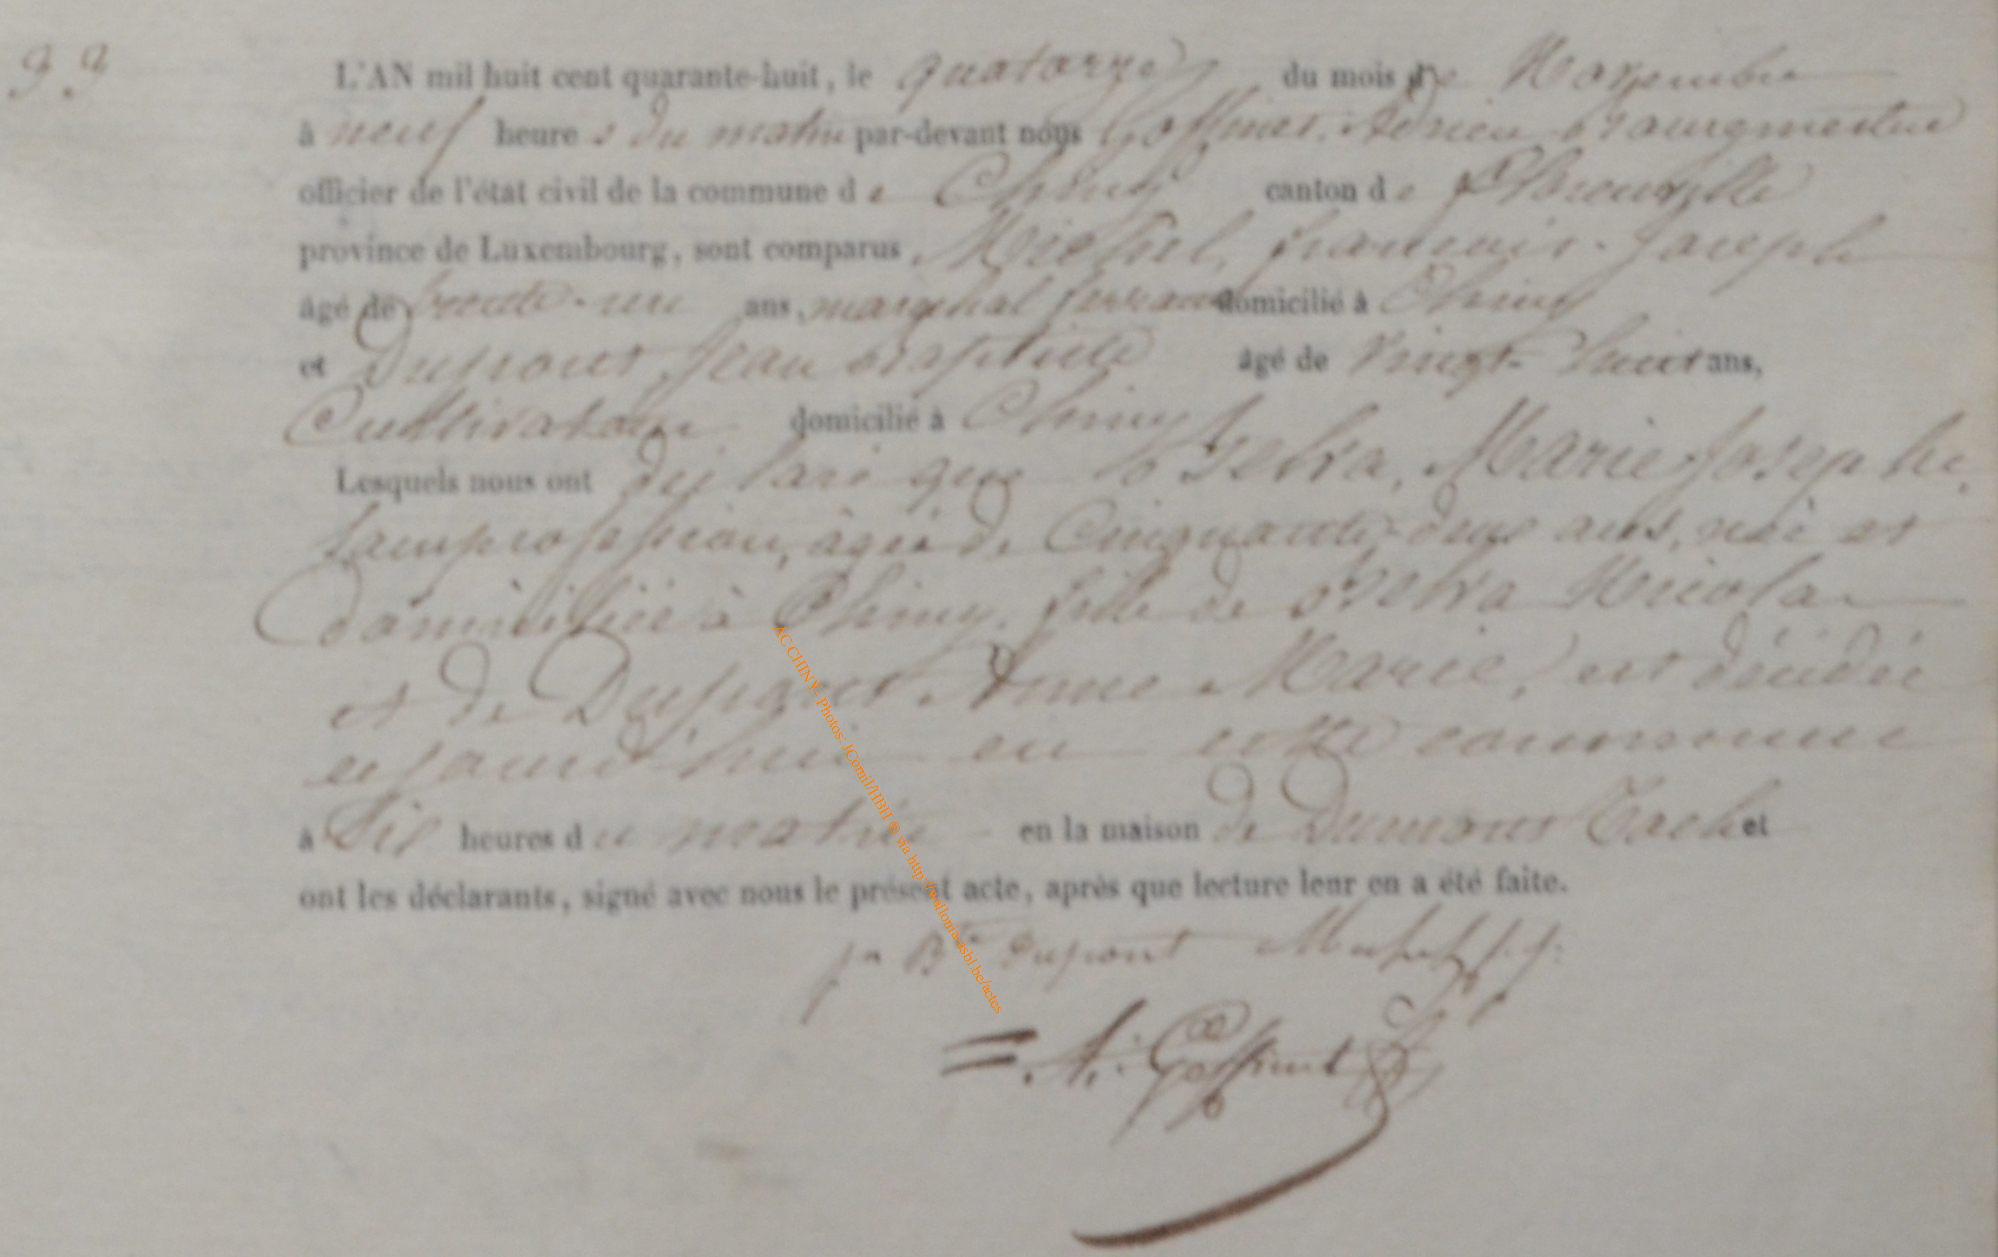 99
L'AN mil huit cent quarante-huit, le quatorze du mois de Novembre
à neuf heures du matin par-devant nous Goffinet, Adrien Bourgmestre
officier de l'état civil de la commune de Chiny canton de
province de Luxembourg, sont comparus Michel, francois-Joseph
âgé de trente-un ans, maréchal ferrant domicilié à Chiny
et Dupont, Jean Baptiste âgé de vingt-huit ans,
Cultivateur domicilié à Chiny
Lesquels nous ont déclaré que Marie Josephe,
sans profession, âgée de Cinquante-deux ans, née et
domiciliée à Chiny, fille de Nicolas
et de Dupont Anne Marie, est décédée
cejourd'hui en cette commune
à six heures du matin en la maison de et
ont les déclarants, signé avec nous le présent acte, après que lecture leur en a été faite.
jn Bte dupont Michel f. j.
A. Goffinet
AC CHINY - Photos: JCornil/HBH © via http://bellorma-asbl.be/actes